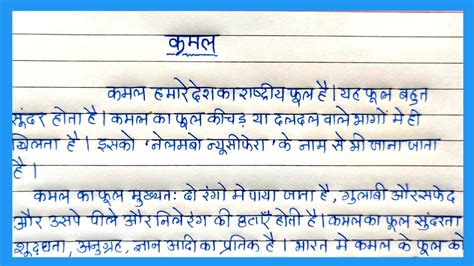 कमल
कमल हमारे देश का राष्ट्रीय फूल है। यह फूल बहुत
सुंदर होता है। कमल का फूल कीचड़ या दलदल वाले भागों मे ही
खिलता है। इसको 'नेलमबो न्यूसीफेरा' के नाम से भी जाना जाता
है।
कमल का फूल मुख्यतः दो रंगो मे पाया जाता है, गुलाबी और सफेद
और उसपे पीले और निले रंग की छटाएँ होती है। कमल का फूल सुंदरता
शुद्धता, अनुग्रह, ज्ञान आदी का प्रतिक है। भारत मे कमल के फूल को